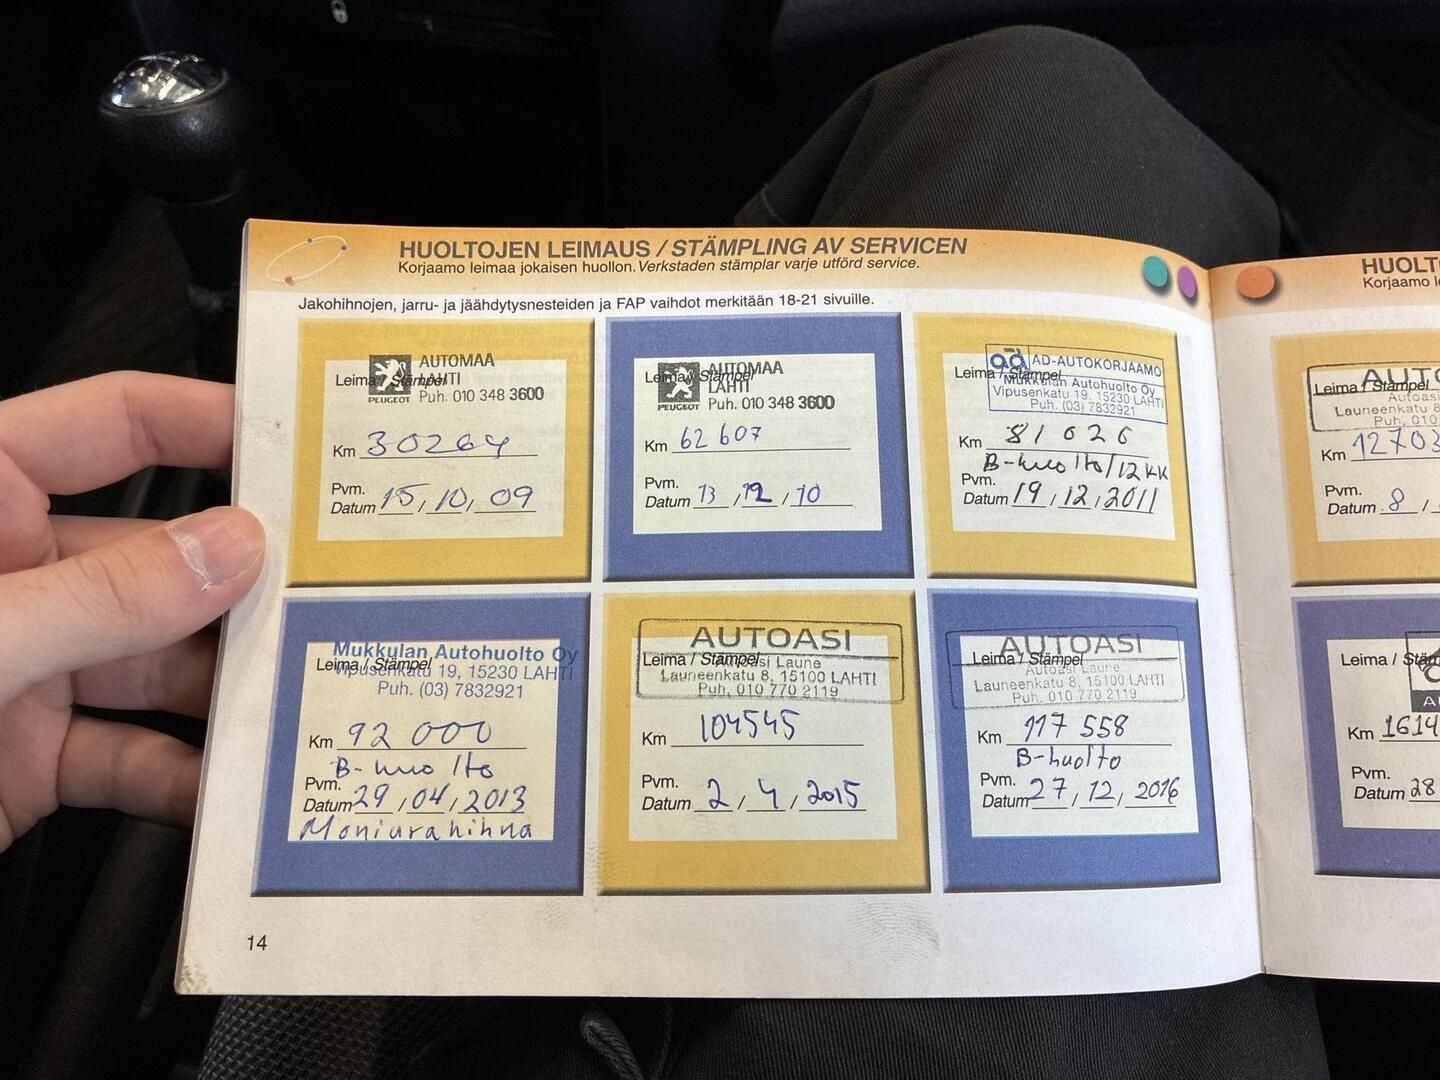 HUOLTOJEN LEIMAUS / STÄMPLING AV SERVICEN
Korjaamo leimaa jokaisen huollon. Verkstaden stämplar varje utförd service.
Jakohihnojen, jarru- ja jäähdytysnesteiden ja FAP vaihdot merkitään 18-21 sivuille.
AUTOMAA
LAHTI
Leima / Stämpel
PEUGEOT Puh. 010 348 3600
Km 30264
Pvm.
Datum 15, 10, 09
AUTOMAA
LAHTI
Leima / Stämpel
PEUGEOT Puh. 010 348 3600
Km 62 607
Pvm.
Datum 13, 12, 10
ad AD-AUTOKORJAAMO
Leima / Stämpel
Mukkulan Autohuolto Oy
Vipusenkatu 19, 15230 LAHTI
Puh. (03) 7832921
Km 81 026
B-huolto/12 KK
Pvm.
Datum 19, 12, 2011
Mukkulan Autohuolto Oy
Leima / Stämpel
Vipusenkatu 19, 15230 LAHTI
Puh. (03) 7832921
Km 92 000
B-huolto
Pvm.
Datum 29 / 04 / 2013
Moniurahihna
AUTOASI
Leima / Stämpel
Autoasi Laune
Launeenkatu 8, 15100 LAHTI
Puh. 010 770 2119
Km 104545
Pvm.
Datum 2 / 4 / 2015
AUTOASI
Leima / Stämpel
Autoasi Laune
Launeenkatu 8, 15100 LAHTI
Puh. 010 770 2119
Km 117 558
B-huolto
Pvm.
Datum 27 / 12 / 2016
14
HUOLT
Korjaamo
AUTO
Leima / Stämpel
Autoasi
Launeenkatu 8
Puh. 010
Km 12703
Pvm.
Datum 8 /
Leima / Stäm
Km 1614
Pvm.
Datum 28